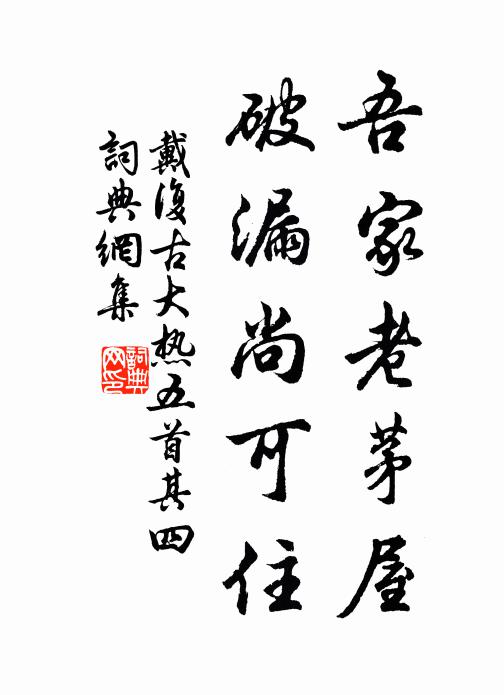 吾家老茅屋
破漏尚可住
戴復古大热五首其四
詞典網集
詞典網印